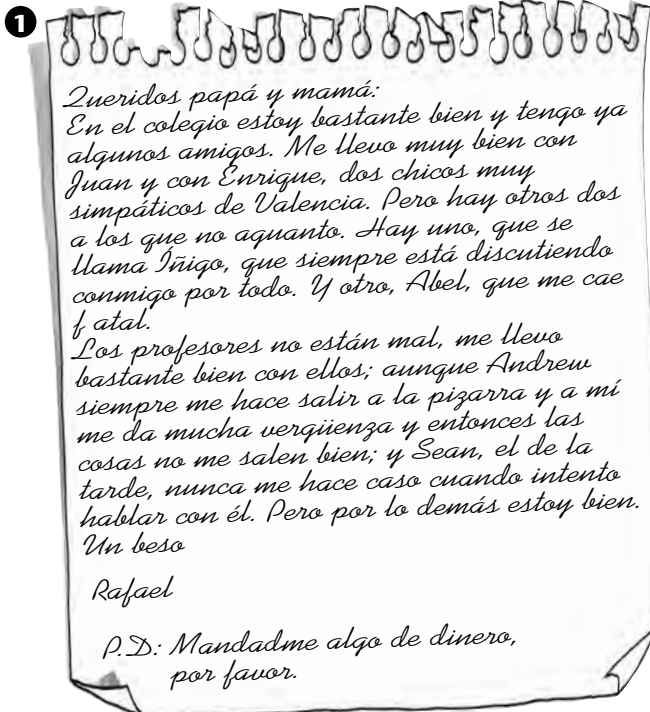 1
Queridos papá y mamá:
En el colegio estoy bastante bien y tengo ya
algunos amigos. Me llevo muy bien con
Juan y con Enrique, dos chicos muy
simpáticos de Valencia. Pero hay otros dos
a los que no aguanto. Hay uno, que se
llama Íñigo, que siempre está discutiendo
conmigo por todo. Y otro, Abel, que me cae
f atal.
Los profesores no están mal, me llevo
bastante bien con ellos; aunque Andrew
siempre me hace salir a la pizarra y a mí
me da mucha vergüenza y entonces las
cosas no me salen bien; y Sean, el de la
tarde, nunca me hace caso cuando intento
hablar con él. Pero por lo demás estoy bien.
Un beso
Rafael
P.D: Mandadme algo de dinero,
por favor.